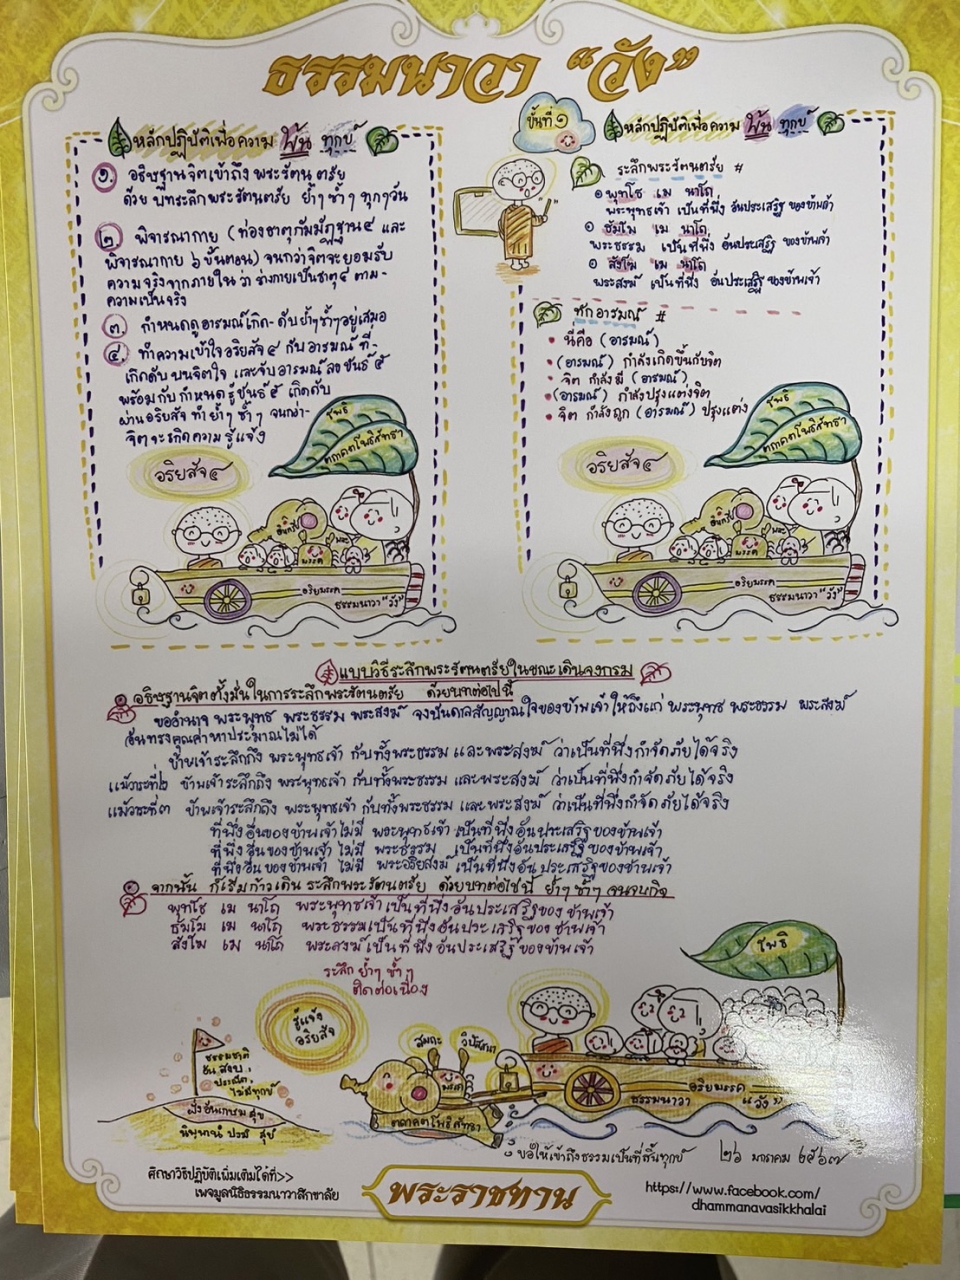 ธรรมนาวา “วัง”
หลักปฏิบัติเพื่อความ พ้น ทุกข์
๑. อธิษฐานจิตเข้าถึง พระรัตนตรัย
ด้วย บทระลึกพระรัตนตรัย ย้ำๆ ซ้ำๆ ทุกๆวัน
๒. พิจารณากาย (ท่องธาตุกัมมัฏฐาน๔ และ
พิจารณากาย ๖ ขั้นตอน) จนกว่าจิตจะยอมรับ
ความจริงจากภายใน ว่า ร่างกายเป็นธาตุ๔ ตาม-
ความเป็นจริง
๓. กำหนดดูอารมณ์เกิด-ดับ ย้ำๆ ซ้ำๆ อยู่เสมอ
๔. ทำความเข้าใจ อริยสัจ ๔ กับ อารมณ์ ที่-
เกิดดับ บนจิตใจ และจับ อารมณ์ ลง ขันธ์ ๕
พร้อมกับ กำหนด รู้ ขันธ์ ๕ เกิดดับ
ผ่าน อริยสัจ ทำ ย้ำๆ ซ้ำๆ จนกว่า-
จิตจะเกิดความ รู้แจ้ง
โพธิ
ตถาคตโพธิสัทธา
อริยสัจ ๔
มรรค
อริยมรรค
ธรรมนาวา "วัง"
ขั้นที่ ๑
หลักปฏิบัติเพื่อความ พ้น ทุกข์
ระลึกพระรัตนตรัย #
พุทโธ เม นาโถ
พระพุทธเจ้า เป็นที่พึ่ง อันประเสริฐ ของข้าพเจ้า
ธัมโม เม นาโถ
พระธรรม เป็นที่พึ่ง อันประเสริฐ ของข้าพเจ้า
สังโฆ เม นาโถ
พระสงฆ์ เป็นที่พึ่ง อันประเสริฐ ของข้าพเจ้า
ทักอารมณ์ #
• นี่คือ (อารมณ์)
• (อารมณ์) กำลังเกิดขึ้นกับจิต
• จิต กำลังมี (อารมณ์)
• (อารมณ์) กำลังปรุงแต่งจิต
• จิต กำลังถูก (อารมณ์) ปรุงแต่ง
โพธิ
ตถาคตโพธิสัทธา
อริยสัจ ๔
มรรค
อริยมรรค
ธรรมนาวา "วัง"
แบบวิธีระลึกพระรัตนตรัยในขณะเดินจงกรม
อธิษฐานจิตตั้งมั่นในการระลึกพระรัตนตรัย ด้วยบทต่อไปนี้
ขออำนาจ พระพุทธ พระธรรม พระสงฆ์ จงบันดาลสัญญาณใจของข้าพเจ้าให้ถึงแก่ พระพุทธ พระธรรม พระสงฆ์
อันทรงคุณค่าหาประมาณไม่ได้
ข้าพเจ้าระลึกถึง พระพุทธเจ้า กับทั้งพระธรรม และพระสงฆ์ ว่าเป็นที่พึ่งกำจัดภัยได้จริง
แม้วาระที่๒ ข้าพเจ้าระลึกถึง พระพุทธเจ้า กับทั้งพระธรรม และพระสงฆ์ ว่าเป็นที่พึ่งกำจัดภัยได้จริง
แม้วาระที่๓ ข้าพเจ้าระลึกถึง พระพุทธเจ้า กับทั้งพระธรรม และพระสงฆ์ ว่าเป็นที่พึ่งกำจัดภัยได้จริง
ที่พึ่งอื่นของข้าพเจ้าไม่มี พระพุทธเจ้า เป็นที่พึ่งอันประเสริฐของข้าพเจ้า
ที่พึ่งอื่นของข้าพเจ้าไม่มี พระธรรม เป็นที่พึ่งอันประเสริฐของข้าพเจ้า
ที่พึ่งอื่นของข้าพเจ้าไม่มี พระอริยสงฆ์ เป็นที่พึ่งอันประเสริฐของข้าพเจ้า
จากนั้น ก็เริ่มก้าวเดิน ระลึกพระรัตนตรัย ด้วยบทต่อไปนี้ ย้ำๆ ซ้ำๆ จนจบกิจ
พุทโธ เม นาโถ พระพุทธเจ้าเป็นที่พึ่งอันประเสริฐของข้าพเจ้า
ธัมโม เม นาโถ พระธรรมเป็นที่พึ่งอันประเสริฐของข้าพเจ้า
สังโฆ เม นาโถ พระสงฆ์เป็นที่พึ่งอันประเสริฐของข้าพเจ้า
ระลึก ย้ำๆ ซ้ำๆ
ติดต่อเนื่อง
รู้แจ้ง
อริยสัจ
โพธิ
สมถะ
วิปัสสนา
ธรรมชาติ
อันสงบ,
ประณีต,
ไม่มีทุกข์
ฝั่งอันเกษมสุข
นิพพานํ ปรมํ สุขํ
มรรค
ตถาคตโพธิสัทธา
อริยมรรค
ธรรมนาวา "วัง"
ขอให้เข้าถึงธรรมเป็นที่สิ้นทุกข์
๒๖ มกราคม ๒๕๖๗
ศึกษาวิธีปฏิบัติเพิ่มเติมได้ที่>>
เพจมูลนิธิธรรมนาวาสิกขาลัย
พระราชทาน
https://www.facebook.com/
dhammanavasikkhalai